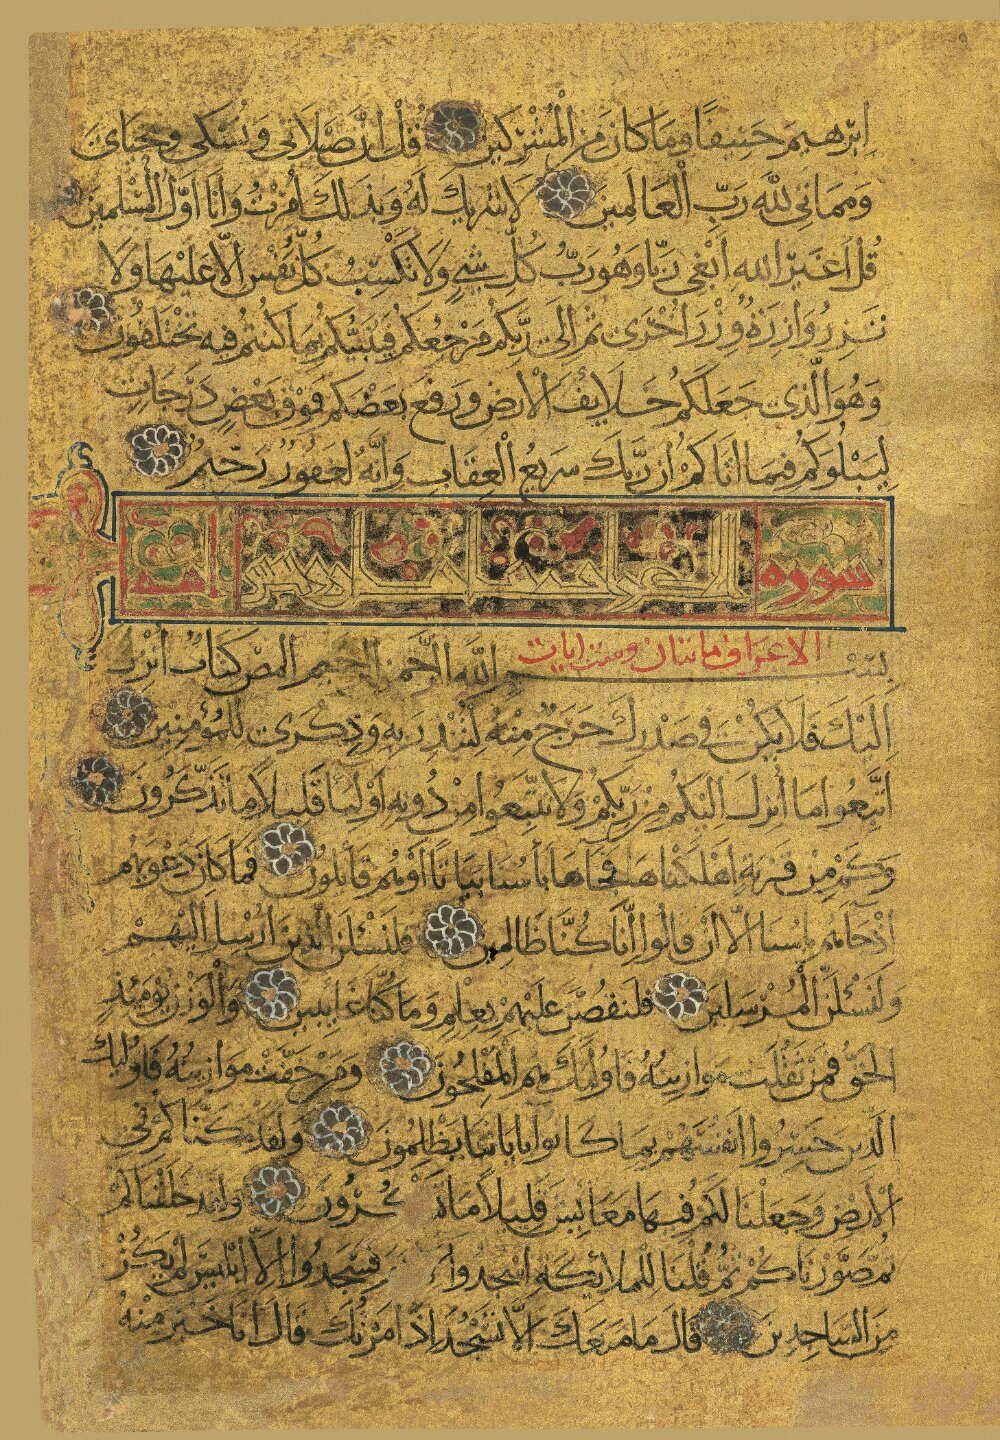 إبرهيم حنيفا وما كان من المشركين قل إن صلاتى ونسكى ومحياى
ومماتى لله رب العالمين لا شريك له وبذلك أمرت وأنا أول المسلمين
قل أغير الله أبغى ربا وهو رب كل شىء ولا تكسب كل نفس إلا عليها ولا
تزر وازرة وزر أخرى ثم إلى ربكم مرجعكم فينبئكم بما كنتم فيه تختلفون
وهو الذى جعلكم خلايف الأرض ورفع بعضكم فوق بعض درجات
ليبلوكم فيما اتاكم إن ربك سريع العقاب وإنه لغفور رحيم
سورة
الاعراف مائتان وست ايات
بسم الله الرحمن الرحيم المص كتاب أنزل
إليك فلا يكن فى صدرك حرج منه لتنذر به وذكرى للمؤمنين
اتبعوا ما أنزل إليكم من ربكم ولا تتبعوا من دونه أوليا قليلا ما تذكرون
وكم من قرية أهلكناها فجآها بأسنا بياتا أو هم قائلون فما كان دعويهم
إذ جآهم بأسنا إلا أن قالوا إنا كنا ظالمين فلنسئلن الذين أرسل إليهم
ولنسئلن المرسلين فلنقصن عليهم بعلم وما كنا غايبين والوزن يومئذ
الحق فمن ثقلت موازينه فاوليك هم المفلحون ومن خفت موازينه فاوليك
الذين خسروا أنفسهم بما كانوا باياتنا يظلمون ولقد مكناكم فى
الأرض وجعلنا لكم فيها معايش قليلا ما تشكرون ولقد خلقناكم
ثم صورناكم ثم قلنا للملائكة اسجدوا فسجدوا إلا إبليس لم يكن
من الساجدين قال ما منعك ألا تسجد إذ أمرتك قال أنا خير منه